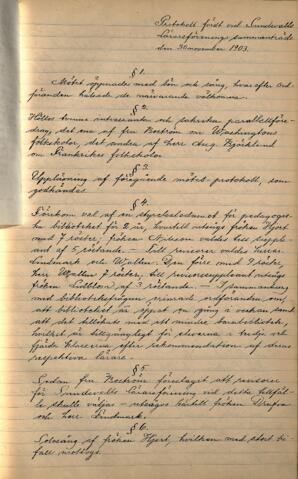 Protokoll fördt vid Sundsvalls
Lärareförenings sammanträde
den 30 november 1903.
§ 1.
Mötet öppnades med bön och sång, hvarefter ord-
föranden helsade de närvarande välkomna.
§ 2.
Hölls tvenne intressanta och sakrika parallellföre-
drag, det ena af fru Boström om Washingtons
folkskolor, det andra af herr Aug. Björklund
om Frankrikes folkskolor.
§ 3.
Uppläsning af föregående mötets protokoll, som
godkändes.
§ 4.
Förekom val af en styrelseledamot för pedagogi-
ska biblioteket för 2 år, hvartill utsågs fröken Hjort
med 7 röster, fröken Nilsson valdes till supple-
ant af 5 röstande. — Till revisorer valdes herrar
Lindmark och Wallén. Den förre med 9 röster,
herr Wallén 7 röster, till revisorssuppleant utsågs
fröken af 3 röstande. — I sammanhang
med biblioteksfrågan erinrade ordföranden om,
att biblioteket är öppet en gång i veckan samt
att det tillökats med ett mindre barnbibliotek,
hvilket är tillgängligt för eleverna i tredje och
fjärde klasserna efter rekommendation af deras
respektiva lärare.
§ 5.
Sedan fru Boström föreslagit att revisorer
för Sundsvalls Lärareförening vid detta tillfäl-
le skulle väljas — utsågos härtill fröken
och herr Lindmark.
§ 6.
Solosång af fröken Hjort, hvilken med stort bi-
fall mottogs.